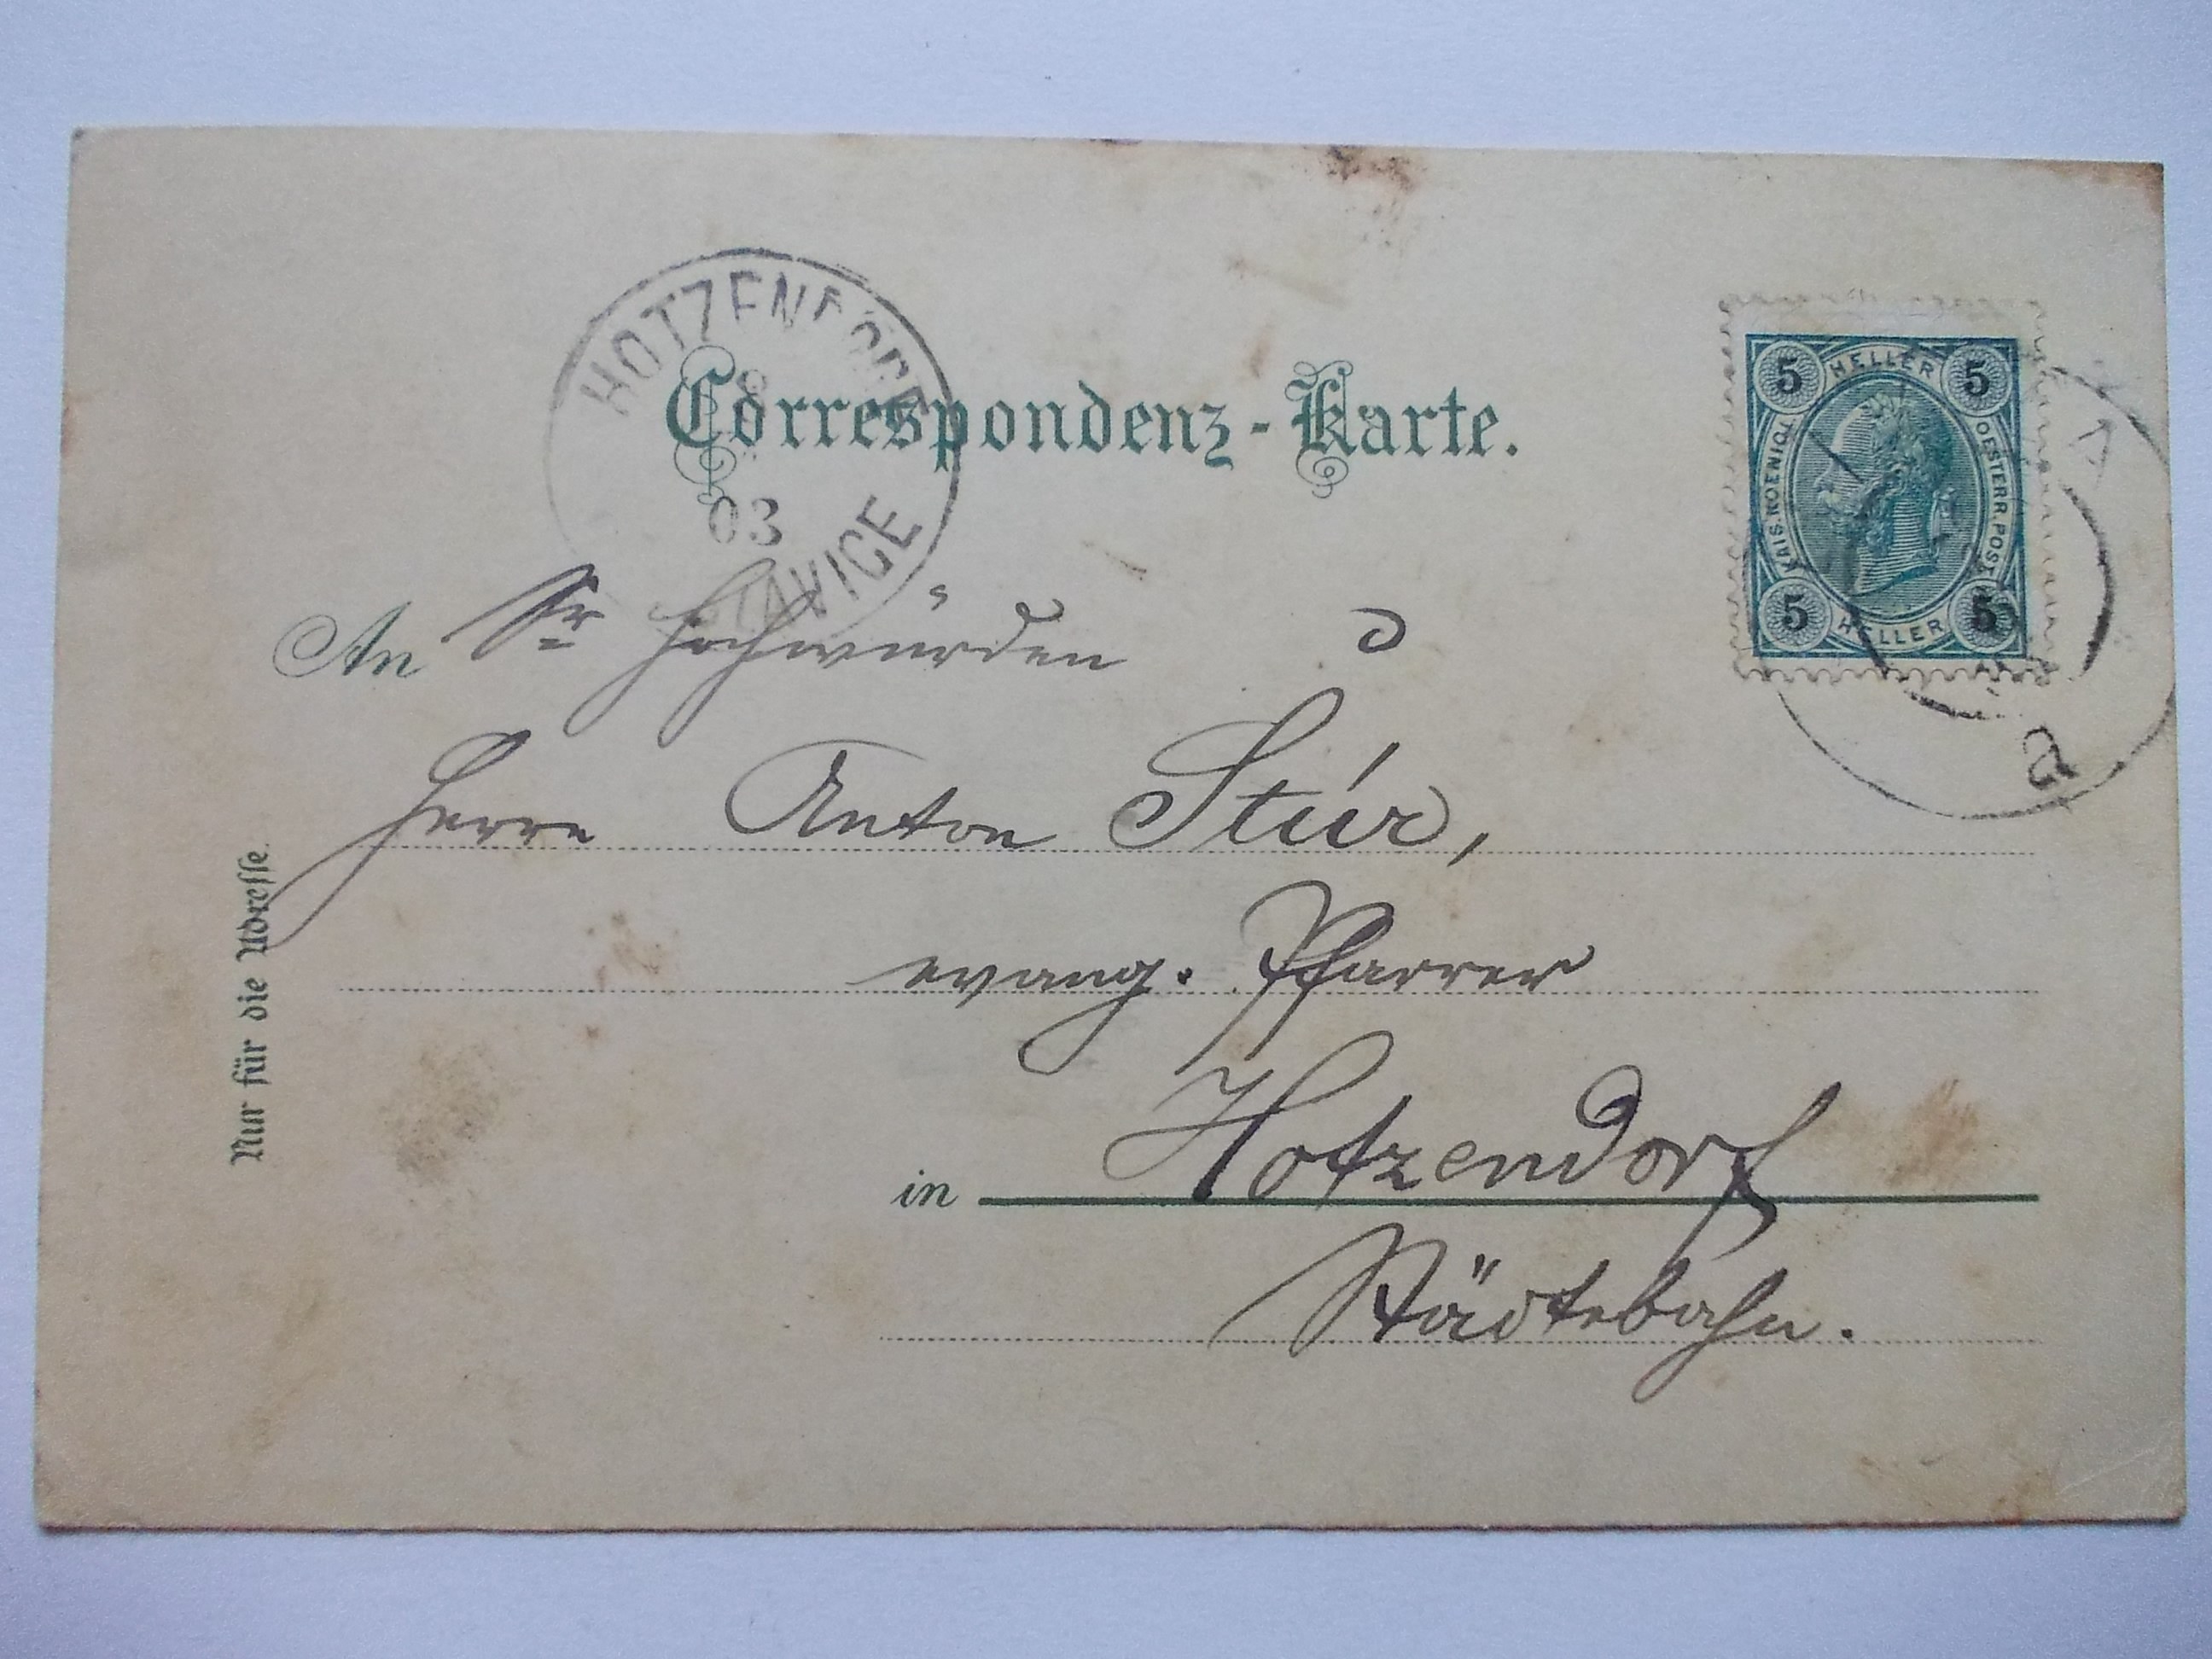 HOTZENDORF
8
03
TAVICE
Correspondenz-Karte.
5 HELLER 5
KAIS. KOENIGL. OESTERR. POST
5 HELLER 5
An Sr Hochwürden
Herrn Anton Štúr,
evang. Pfarrer
in Hotzendorf
Städtebahn.
Nur für die Adresse.